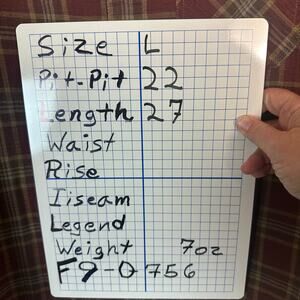 Size L
Pit-Pit 22
Length 27
Waist
Rise
Iiseam
Legend
Weight 7oz
F9-0 756